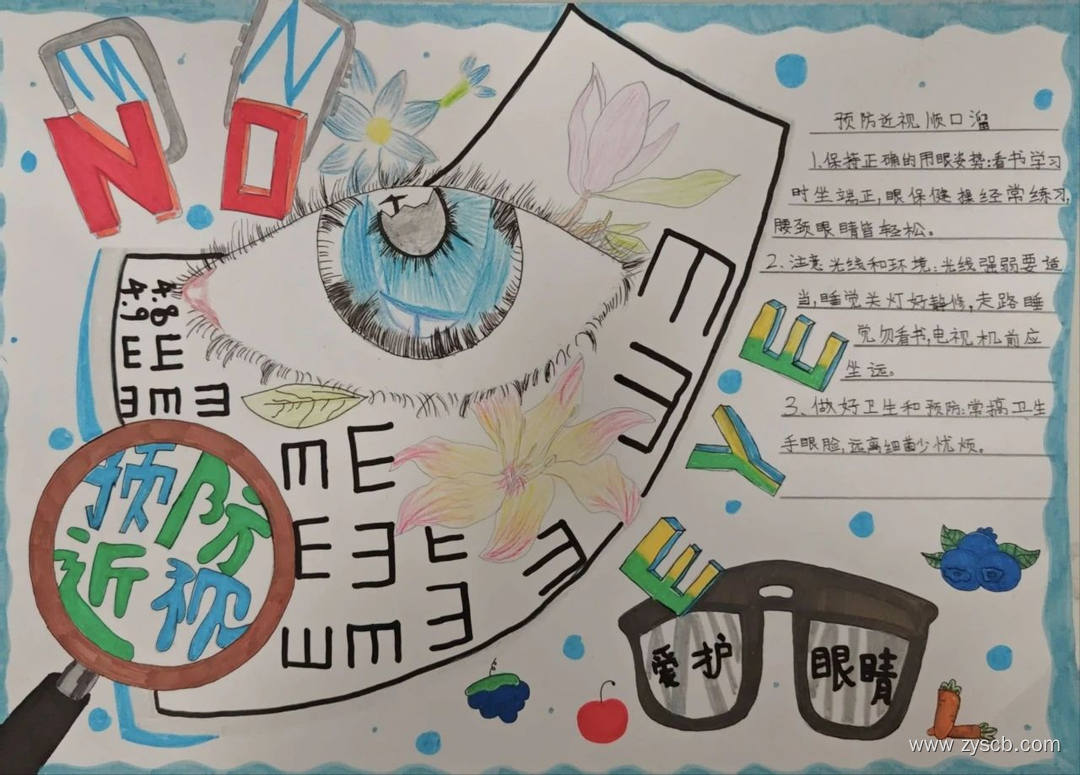 NO
预防近视顺口溜
1.保持正确的用眼姿势:看书学习
时坐端正,眼保健操经常练习,
腰颈眼睛皆轻松。
2.注意光线和环境:光线强弱要适
当,睡觉关灯好静修,走路睡
觉勿看书,电视机前应
坐远。
3、做好卫生和预防:常搞卫生
手眼脸,远离细菌少忧烦。
4.8
4.9
EYE
预防
近视
爱护 眼睛
www.zyscb.com